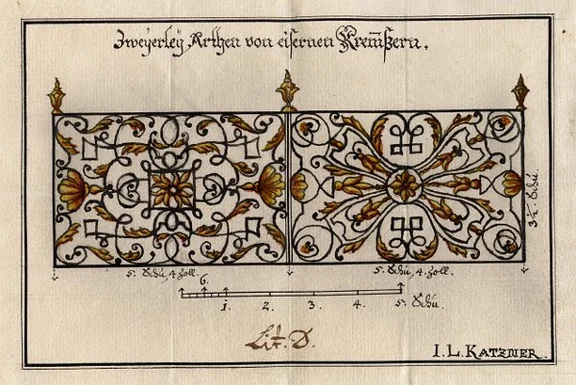 Zweyerley Arthen von eisernen Kremßern.
3½. Schú.
5. Schú, 4. Zoll.
5. Schú, 4. Zoll.
6.
1. 2. 3. 4. 5. Schú.
Lit. D.
I. L. KATZNER.